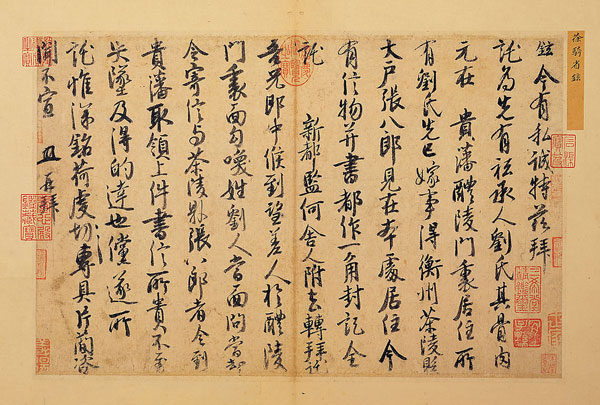 徐騎省鉉
鉉今有私誠特茲拜
託為先有祗承人劉氏其骨肉
元在 貴藩醴陵門裏居住所
有劉氏先已嫁事得衡州茶陵縣
大戶張八郎見在本處居住今
有信物并書都作一角封記全
託 新都監何舍人附去轉拜託
吾兄郎中候到望差人於醴陵
門裏面勾喚姓劉人當面問當却
令寄信与茶陵縣張八郎者令到
貴藩取領上件書信所貴不至
失墜及得的達也儻遂所
託惟深銘荷虔切專具片簡咨
聞不宣 鉉再拜